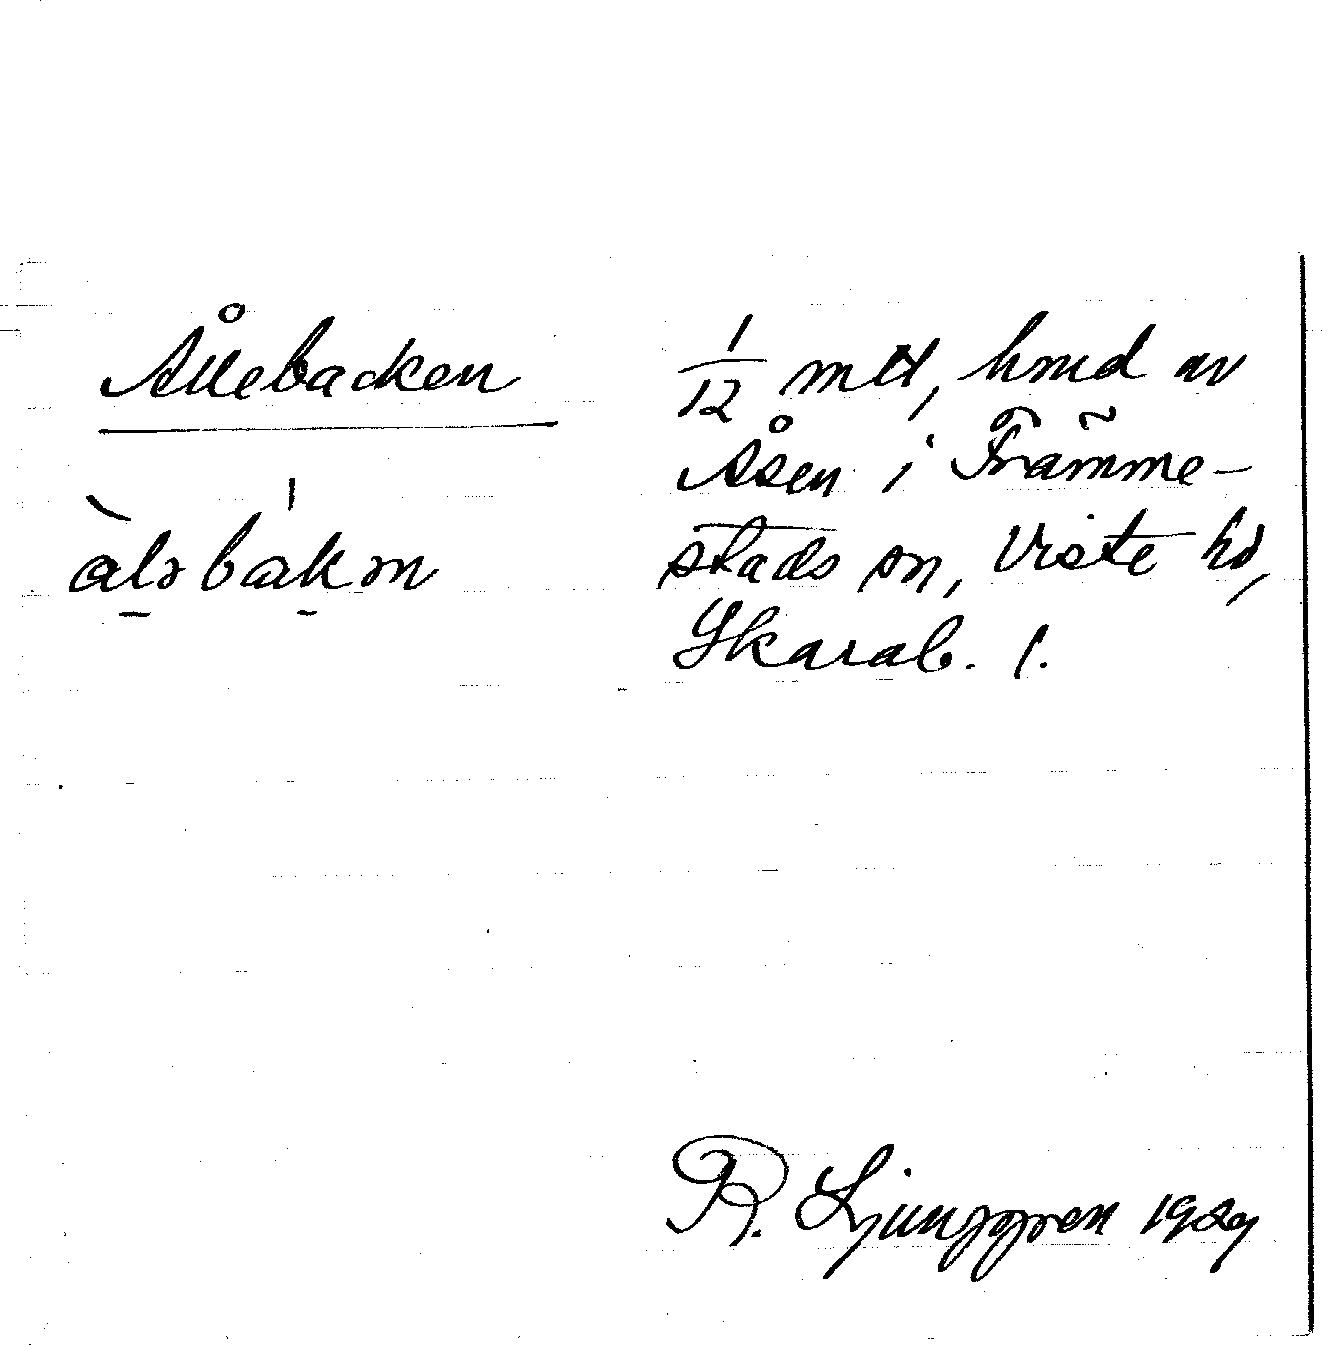 Ållebacken
àləbak ən
1/12 mtl, hmd av
Åsen i Främme-
stads sn, Viste hd,
Skarab. l.
R. Ljunggren 1929